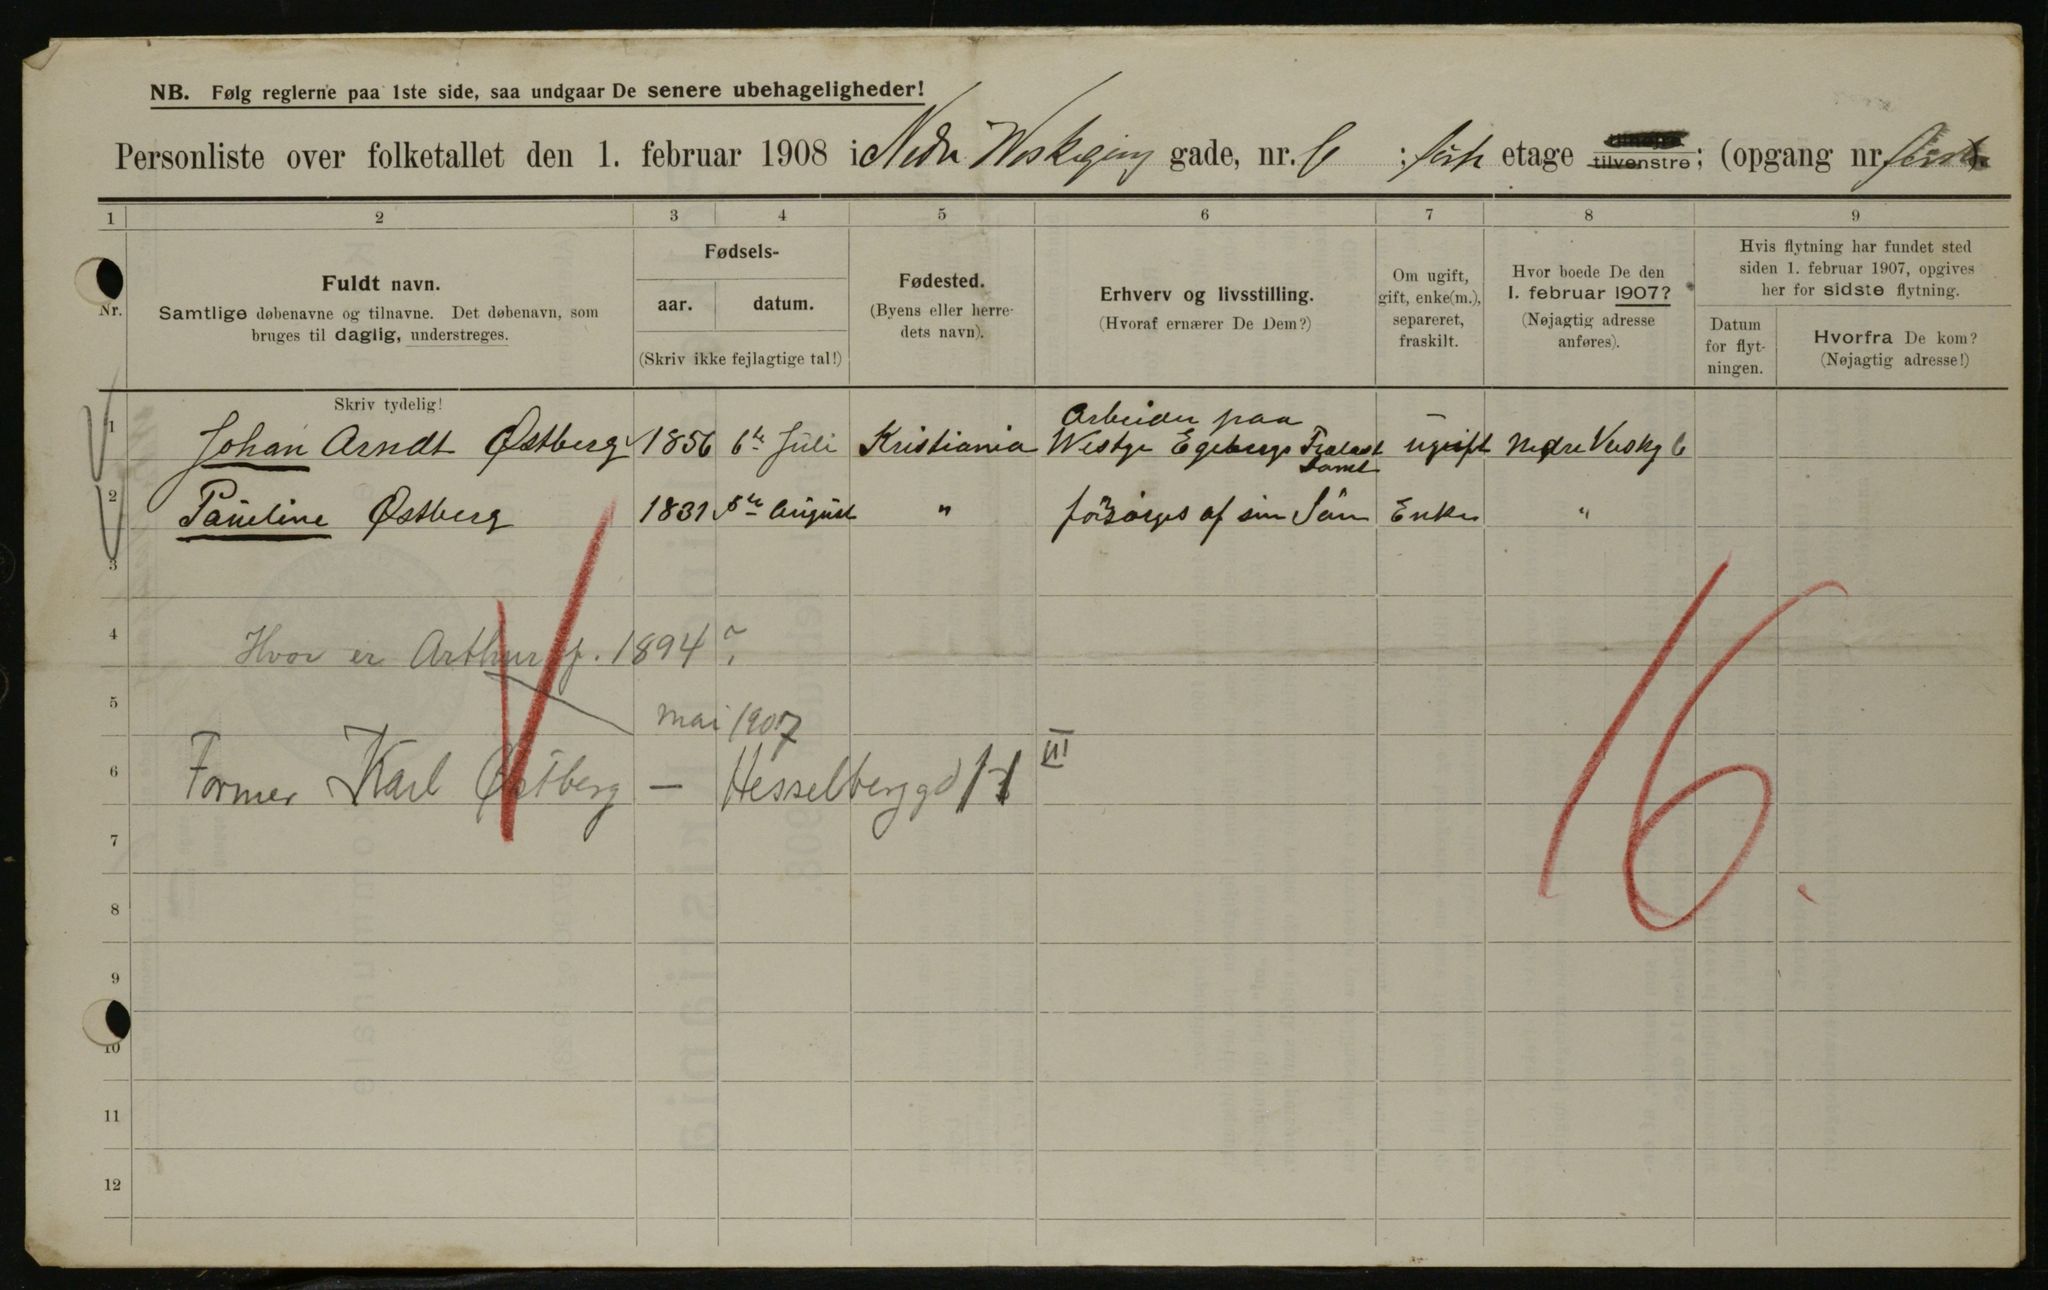 NB. Følg reglerne paa 1ste side, saa undgaar De senere ubehageligheder!
Personliste over folketallet den 1. februar 1908 i Nedre gade, nr. 6 ; første etage tilvenstre; (opgang nr.
1 2 3 4 5 6 7 8 9
Nr.
Fuldt navn.
Samtlige døbenavne og tilnavne. Det døbenavn, som
bruges til daglig, understreges.
Fødsels-
aar. datum.
(Skriv ikke fejlagtige tal!)
Fødested.
(Byens eller herre-
dets navn).
Erhverv og livsstilling.
(Hvoraf ernærer De Dem?)
Om ugift,
gift, enke(m.),
separeret,
fraskilt.
Hvor boede De den
1. februar 1907?
(Nøjagtig adresse
anføres).
Hvis flytning har fundet sted
siden 1. februar 1907, opgives
her for sidste flytning.
Datum
for flyt-
ningen.
Hvorfra De kom?
(Nøjagtig adresse!)
Skriv tydelig!
Arbeider paa
1 Johan Arndt Østberg 1856 6te Juli Kristiania Westye Egebergs ugift Nedre 6
2 Pauline Østberg 1831 5te August " forsørges af sin Søn Enke "
3
4 Hvor er Arthur f. 1894?
5 mai 1907
6 Former Karl Østberg — Hesselberggd III
16.
7
8
9
10
11
12